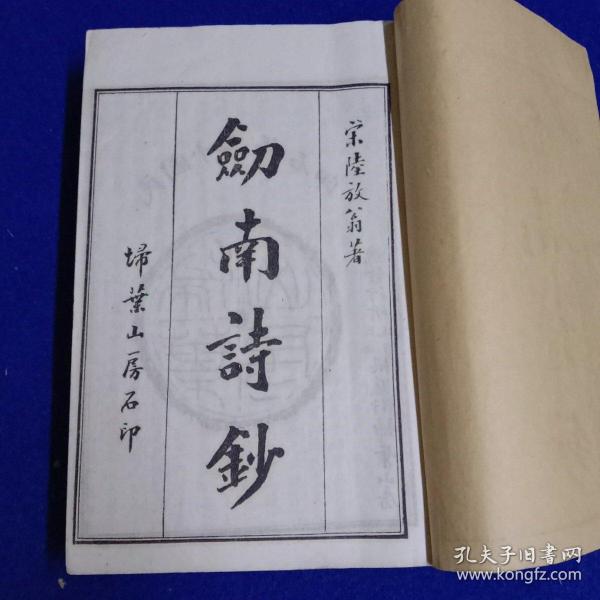 宋陸放翁著
劒南詩鈔
埽葉山房石印
孔夫子旧书网
www.kongfz.com